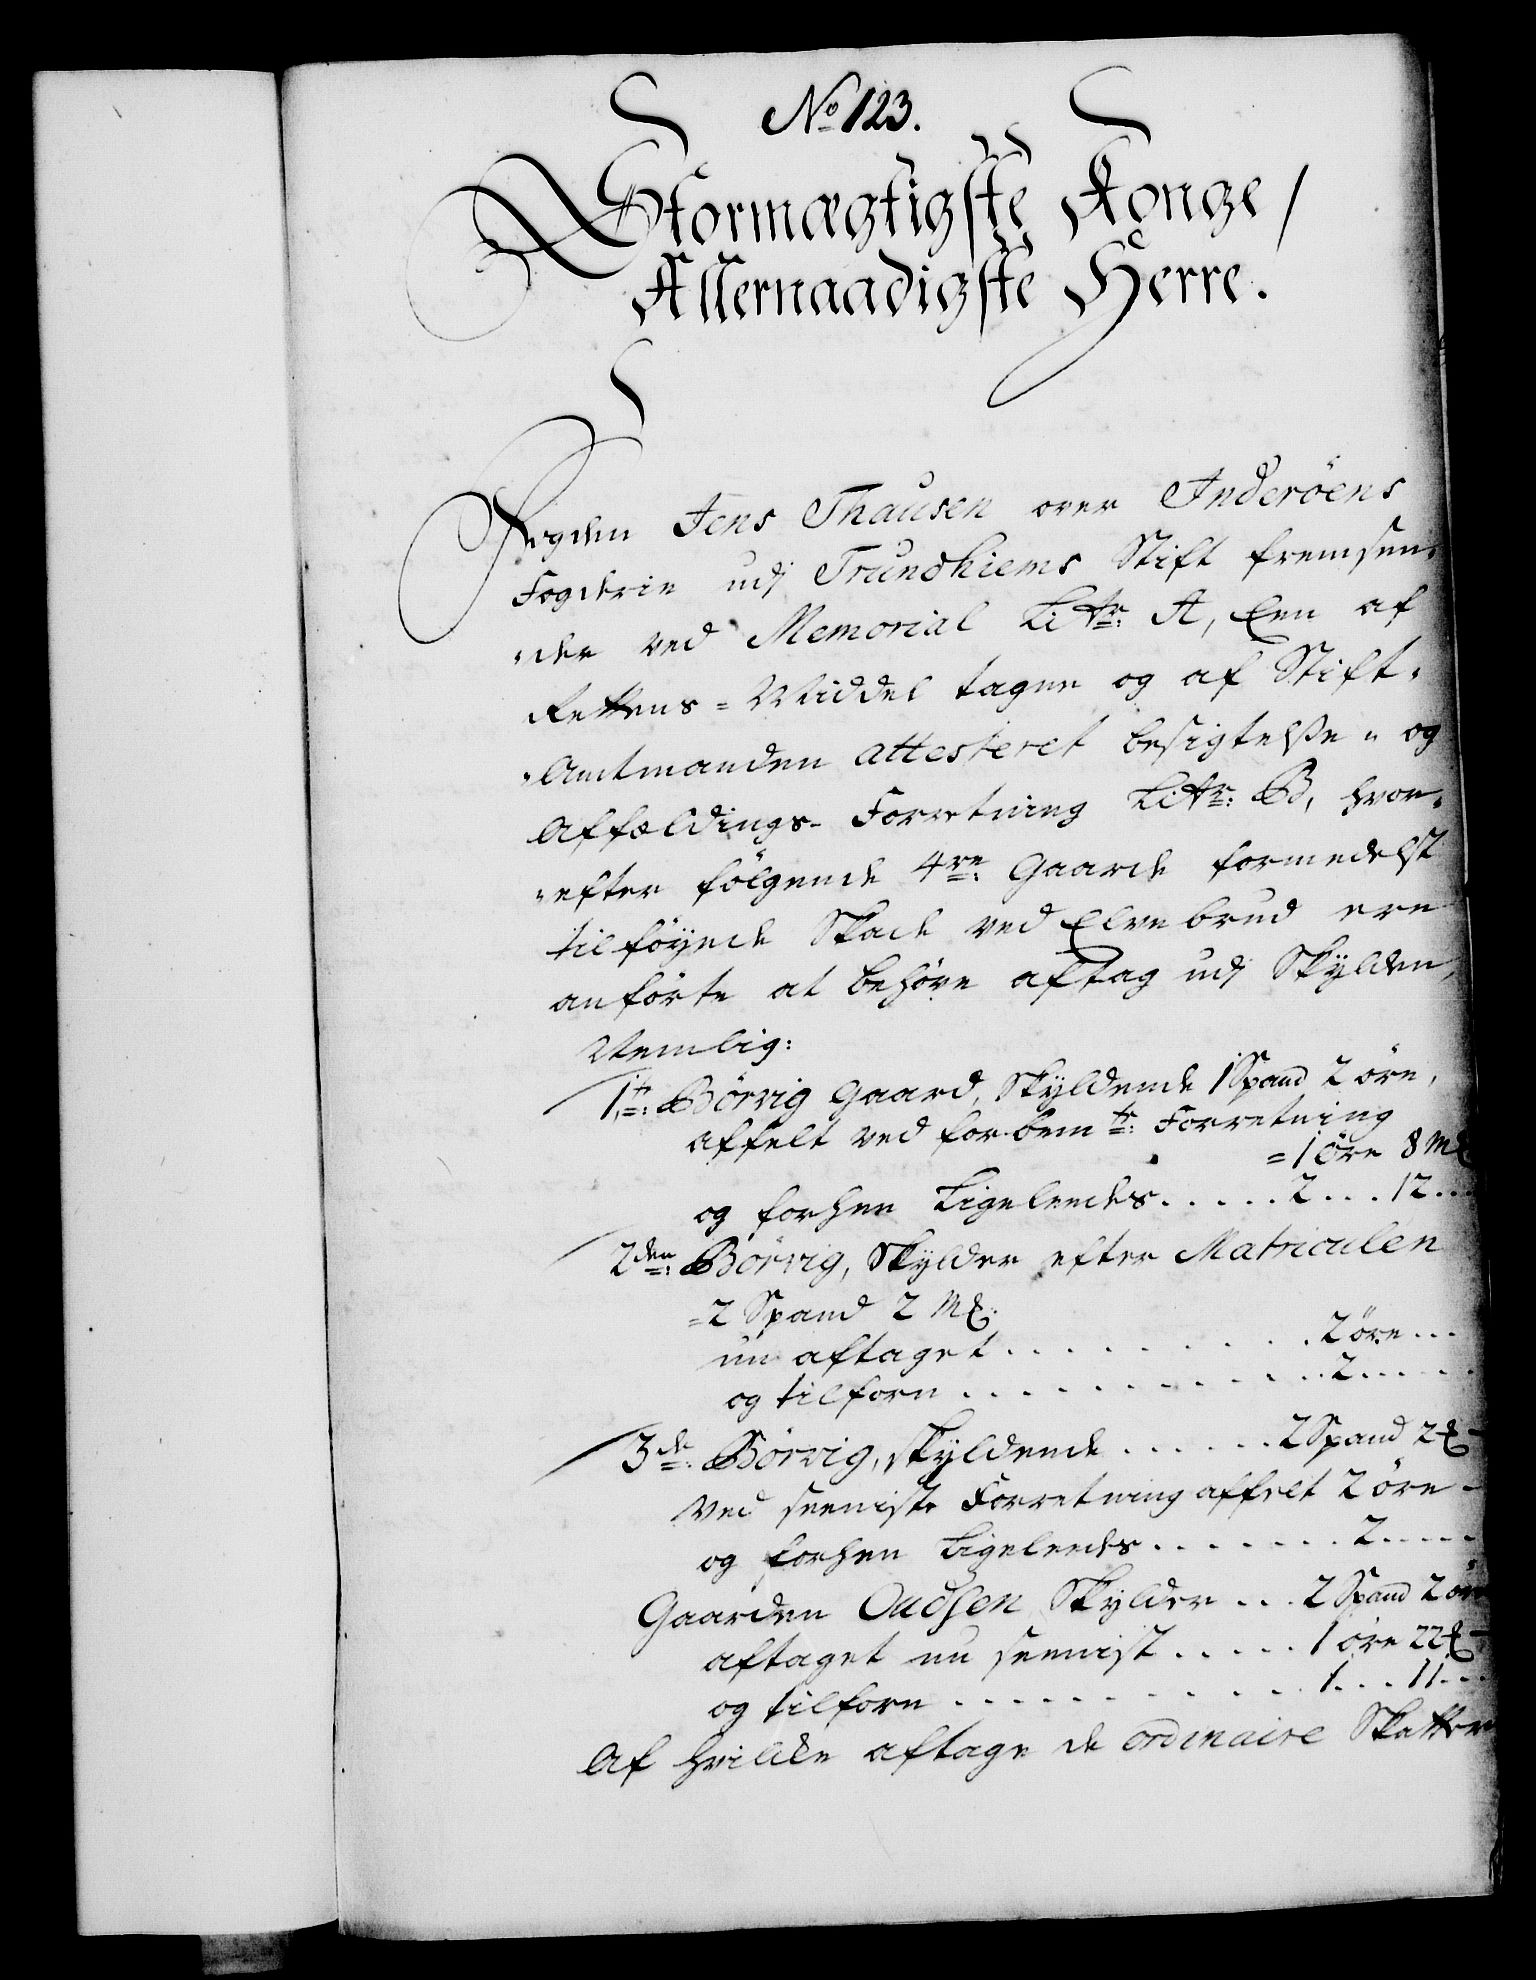 No 123.
Stormægtigste Konge/
Allernaadigste Herre.
Fogden Jens Thausen over Inderöens
Fogderie udj Trundhiems Stift fremsen-
"der ved Memorial Litr: A, Een af
Rettens-Middel tagne og af Stift-
"Amtmanden attesteret besigtelsse- og
Affældings- Forretning Litr: B, hvor-
"efter fölgende 4re: Gaarde formedelst
tilföyede Skade ved Elvebrud ere
anförte at behöve aftag udj Skylden,
Nemlig:
1te: Börvig Gaard, Skyldende 1 Spand 2 öre,
affelt ved forbemte: Forretning
=1 öre 8 Mk
og forhen Ligeleedes.....2...12...
2den: Börvig, Skylder efter Matriculen
=2 Spand 2 Mk:
nu aftaget..........2 öre...
og tilforn............2.....
3de: Börvig, skyldende......2 Spand 2 -
Ved seeniste Forretning affelt 2 öre -
og forhen Ligeleedes.......2.....
Gaarden Oudsen Skylder...2 Spand 2 öre
aftaget nu seenist.....1 öre 22 -
og tilforn...........1...11...
Af hvilke aftage de ordinaire Skatter